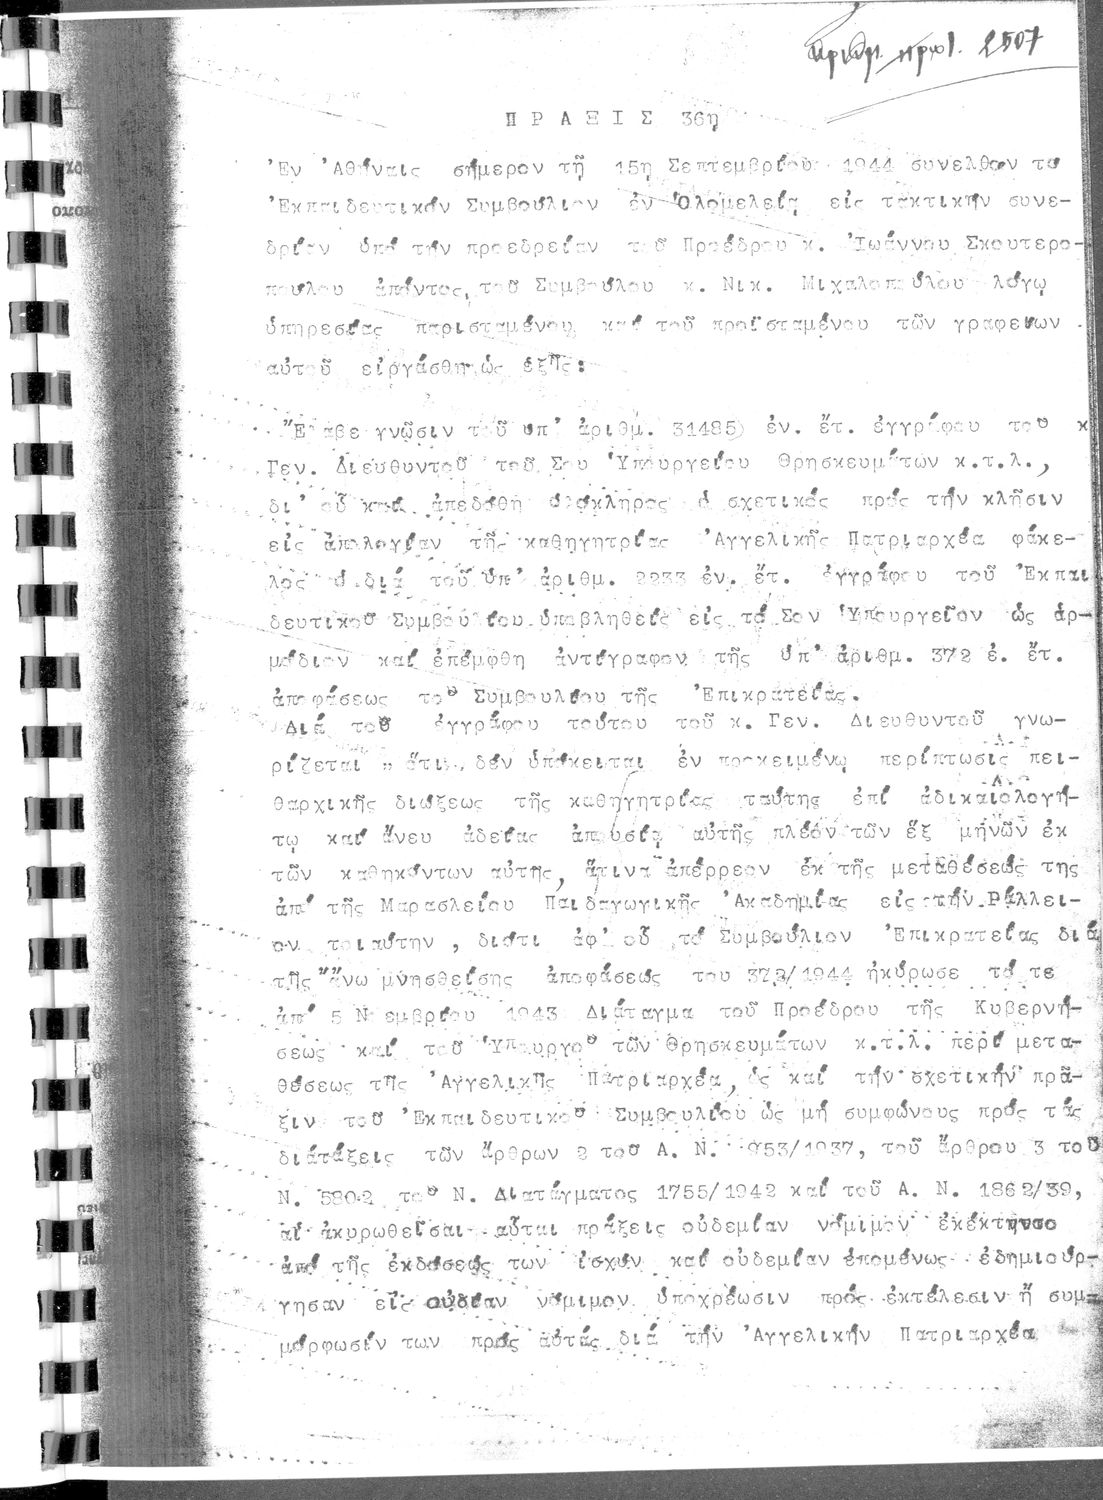 αριθμ. πρωτ. 2507
ΠΡΑΞΙΣ 36η
'Εν 'Αθήναις σήμερον τῇ 15η Σεπτεμβρίου 1944 συνελθον το
'Εκπαιδευτικόν Συμβούλιον ἐν Ὁλομελείᾳ εἰς τακτικήν συνε-
δρίαν ὑπό τήν προεδρείαν τοῦ Προέδρου κ. 'Ιωάννου Σκουτερο-
πούλου ἀπόντος, τοῦ Συμβούλου κ. Νικ. Μιχαλοπούλου λόγῳ
ὑπηρεσίας παρισταμένου καί τοῦ προϊσταμένου τῶν γραφειων
αὐτοῦ εἰργάσθη ὡς ἑξῆς:
"Ελαβε γνῶσιν τοῦ υπ' ἀριθμ. 31485 ἐν. ἔτ. ἐγγράφου του κ
Γεν. Διευθυντοῦ τοῦ Σου Ὑπουργείου Θρησκευμάτων κ.τ.λ.,
δι' οὗ καί ἀπεδόθη ὁλόκληρος ὁ σχετικός πρός τήν κλῆσιν
εἰς ἀπολογίαν τῆς καθηγητρίας 'Αγγελικῆς Πατριαρχέα φάκε-
λος ὁ διά τοῦ ὑπ' ἀριθμ. 2233 ἐν. ἔτ. ἐγγράφου τοῦ 'Εκπαι
δευτικοῦ Συμβουλίου ὑποβληθείς εἰς τό Σον Ὑπουργεῖον ὡς ἁρ-
μόδιον καί ἐπέμφθη ἀντίγραφον τῆς ὑπ' ἀριθμ. 372 ἐ. ἔτ.
ἀποφάσεως τοῦ Συμβουλίου τῆς 'Επικρατείας.
Διά τοῦ ἐγγράφου τούτου τοῦ κ. Γεν. Διευθυντοῦ γνω-
ρίζεται " ὅτι δέν ὑπόκειται ἐν προκειμένῳ περίπτωσις πει-
θαρχικῆς διώξεως τῆς καθηγητρίας ταύτης ἐπί ἀδικαιολογή-
τῳ καί ἄνευ ἀδείας ἀπουσίᾳ αὐτῆς πλέον τῶν ἕξ μηνῶν ἐκ
τῶν καθηκόντων αὐτῆς, ἅτινα ἀπέρρεον ἐκ τῆς μεταθέσεώς της
ἀπό τῆς Μαρασλείου Παιδαγωγικῆς 'Ακαδημίας εἰς τήν Ράλλει-
ον τοιαύτην , διότι ἀφ' οὗ τό Συμβούλιον 'Επικρατείας διά
τῆς ἄνω μνησθείσης ἀποφάσεώς του 372/1944 ἠκύρωσε τό τε
ἀπό 5 Νοεμβρίου 1943 Διάταγμα τοῦ Προέδρου τῆς Κυβερνή-
σεως καί τοῦ Ὑπουργοῦ τῶν Θρησκευμάτων κ.τ.λ. περί μετα-
θέσεως τῆς 'Αγγελικῆς Πατριαρχέα, ὡς καί τήν σχετικήν πρᾶ-
ξιν τοῦ 'Εκπαιδευτικοῦ Συμβουλίου ὡς μή συμφώνους πρός τάς
διατάξεις τῶν ἄρθρων 2 τοῦ Α. Ν. 953/1937, τοῦ ἄρθρου 3 τοῦ
Ν. 5802 τοῦ Ν. Διατάγματος 1755/1942 καί τοῦ Α. Ν. 1862/39,
αἱ ἀκυρωθεῖσαι αὗται πράξεις οὐδεμίαν νόμιμον ἐκέκτηντο
ἀπό τῆς ἐκδόσεώς των ἰσχύν καί οὐδεμίαν ἑπομένως ἐδημιούρ-
γησαν εἰς οὐδέαν νόμιμον ὑποχρέωσιν πρός ἐκτέλεσιν ἤ συμ-
μόρφωσίν των πρός αὐτάς διά τήν 'Αγγελικήν Πατριαρχέα